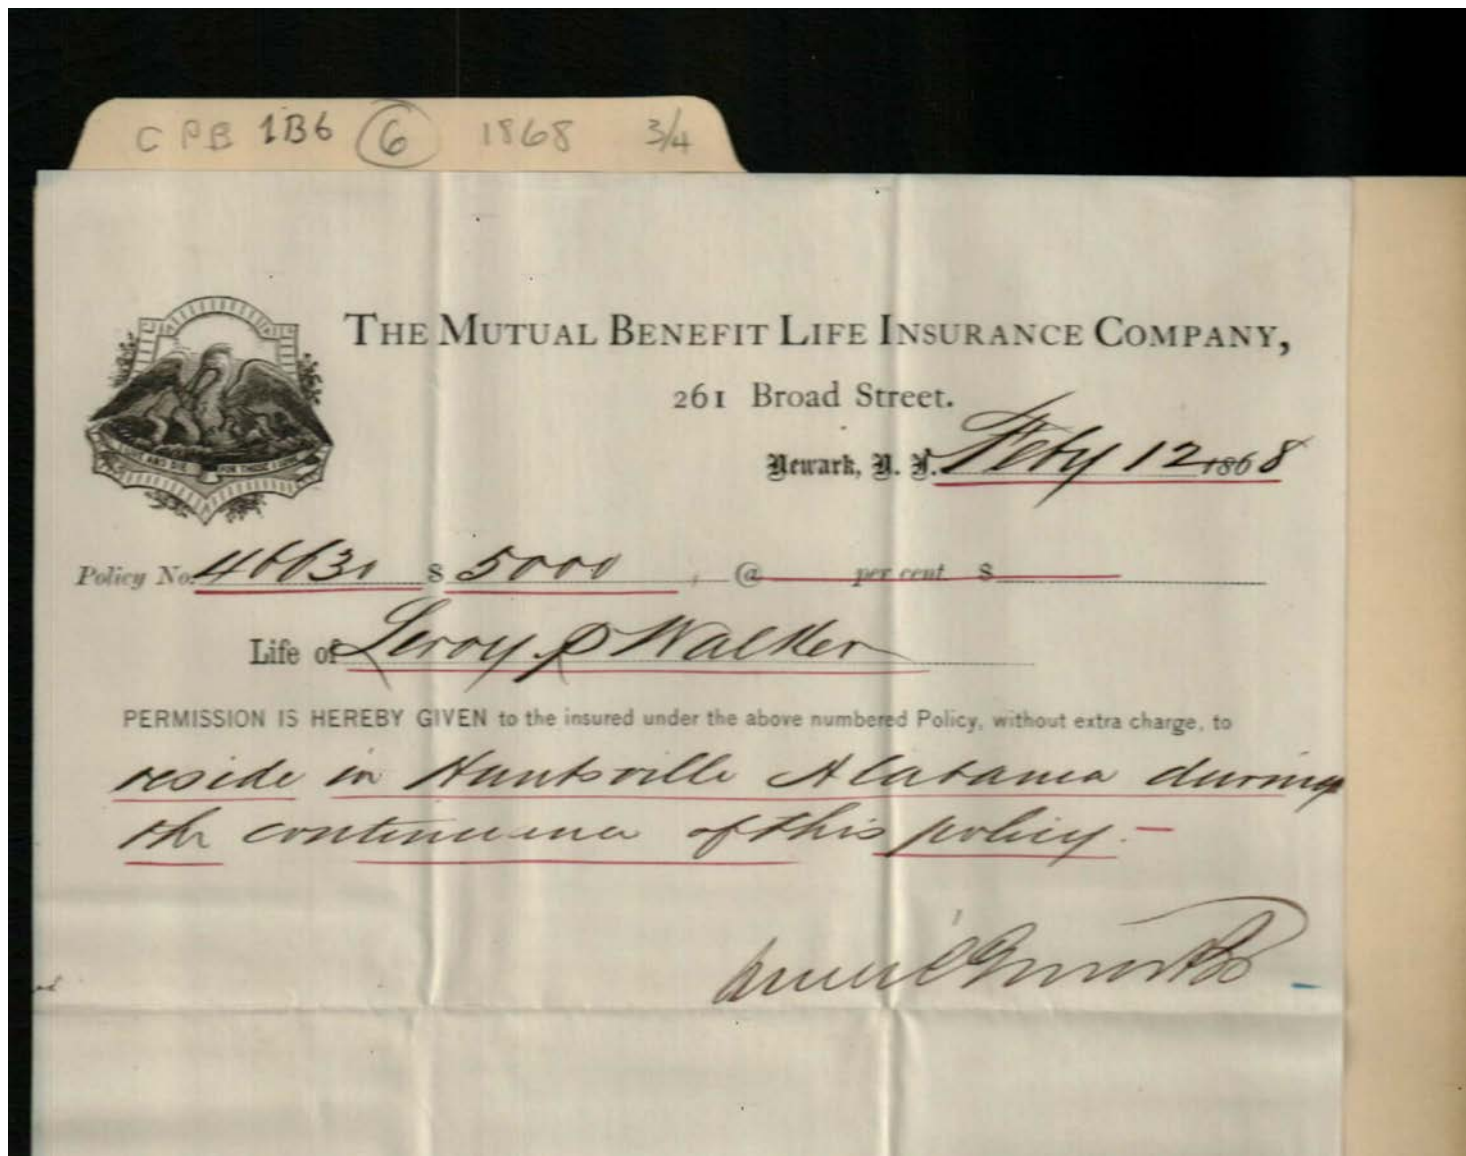 CPB 1B6 6 1868 3/4
THE MUTUAL BENEFIT LIFE INSURANCE COMPANY,
261 Broad Street.
Newark, N. J. Feby 12 1868
LIVE AND DIE FOR THOSE I LOVE
Policy No. 46630 $ 5000 , @ per cent $
Life of Leroy P Walker
PERMISSION IS HEREBY GIVEN to the insured under the above numbered Policy, without extra charge, to
reside in Huntsville Alabama during
the continuance of this policy.